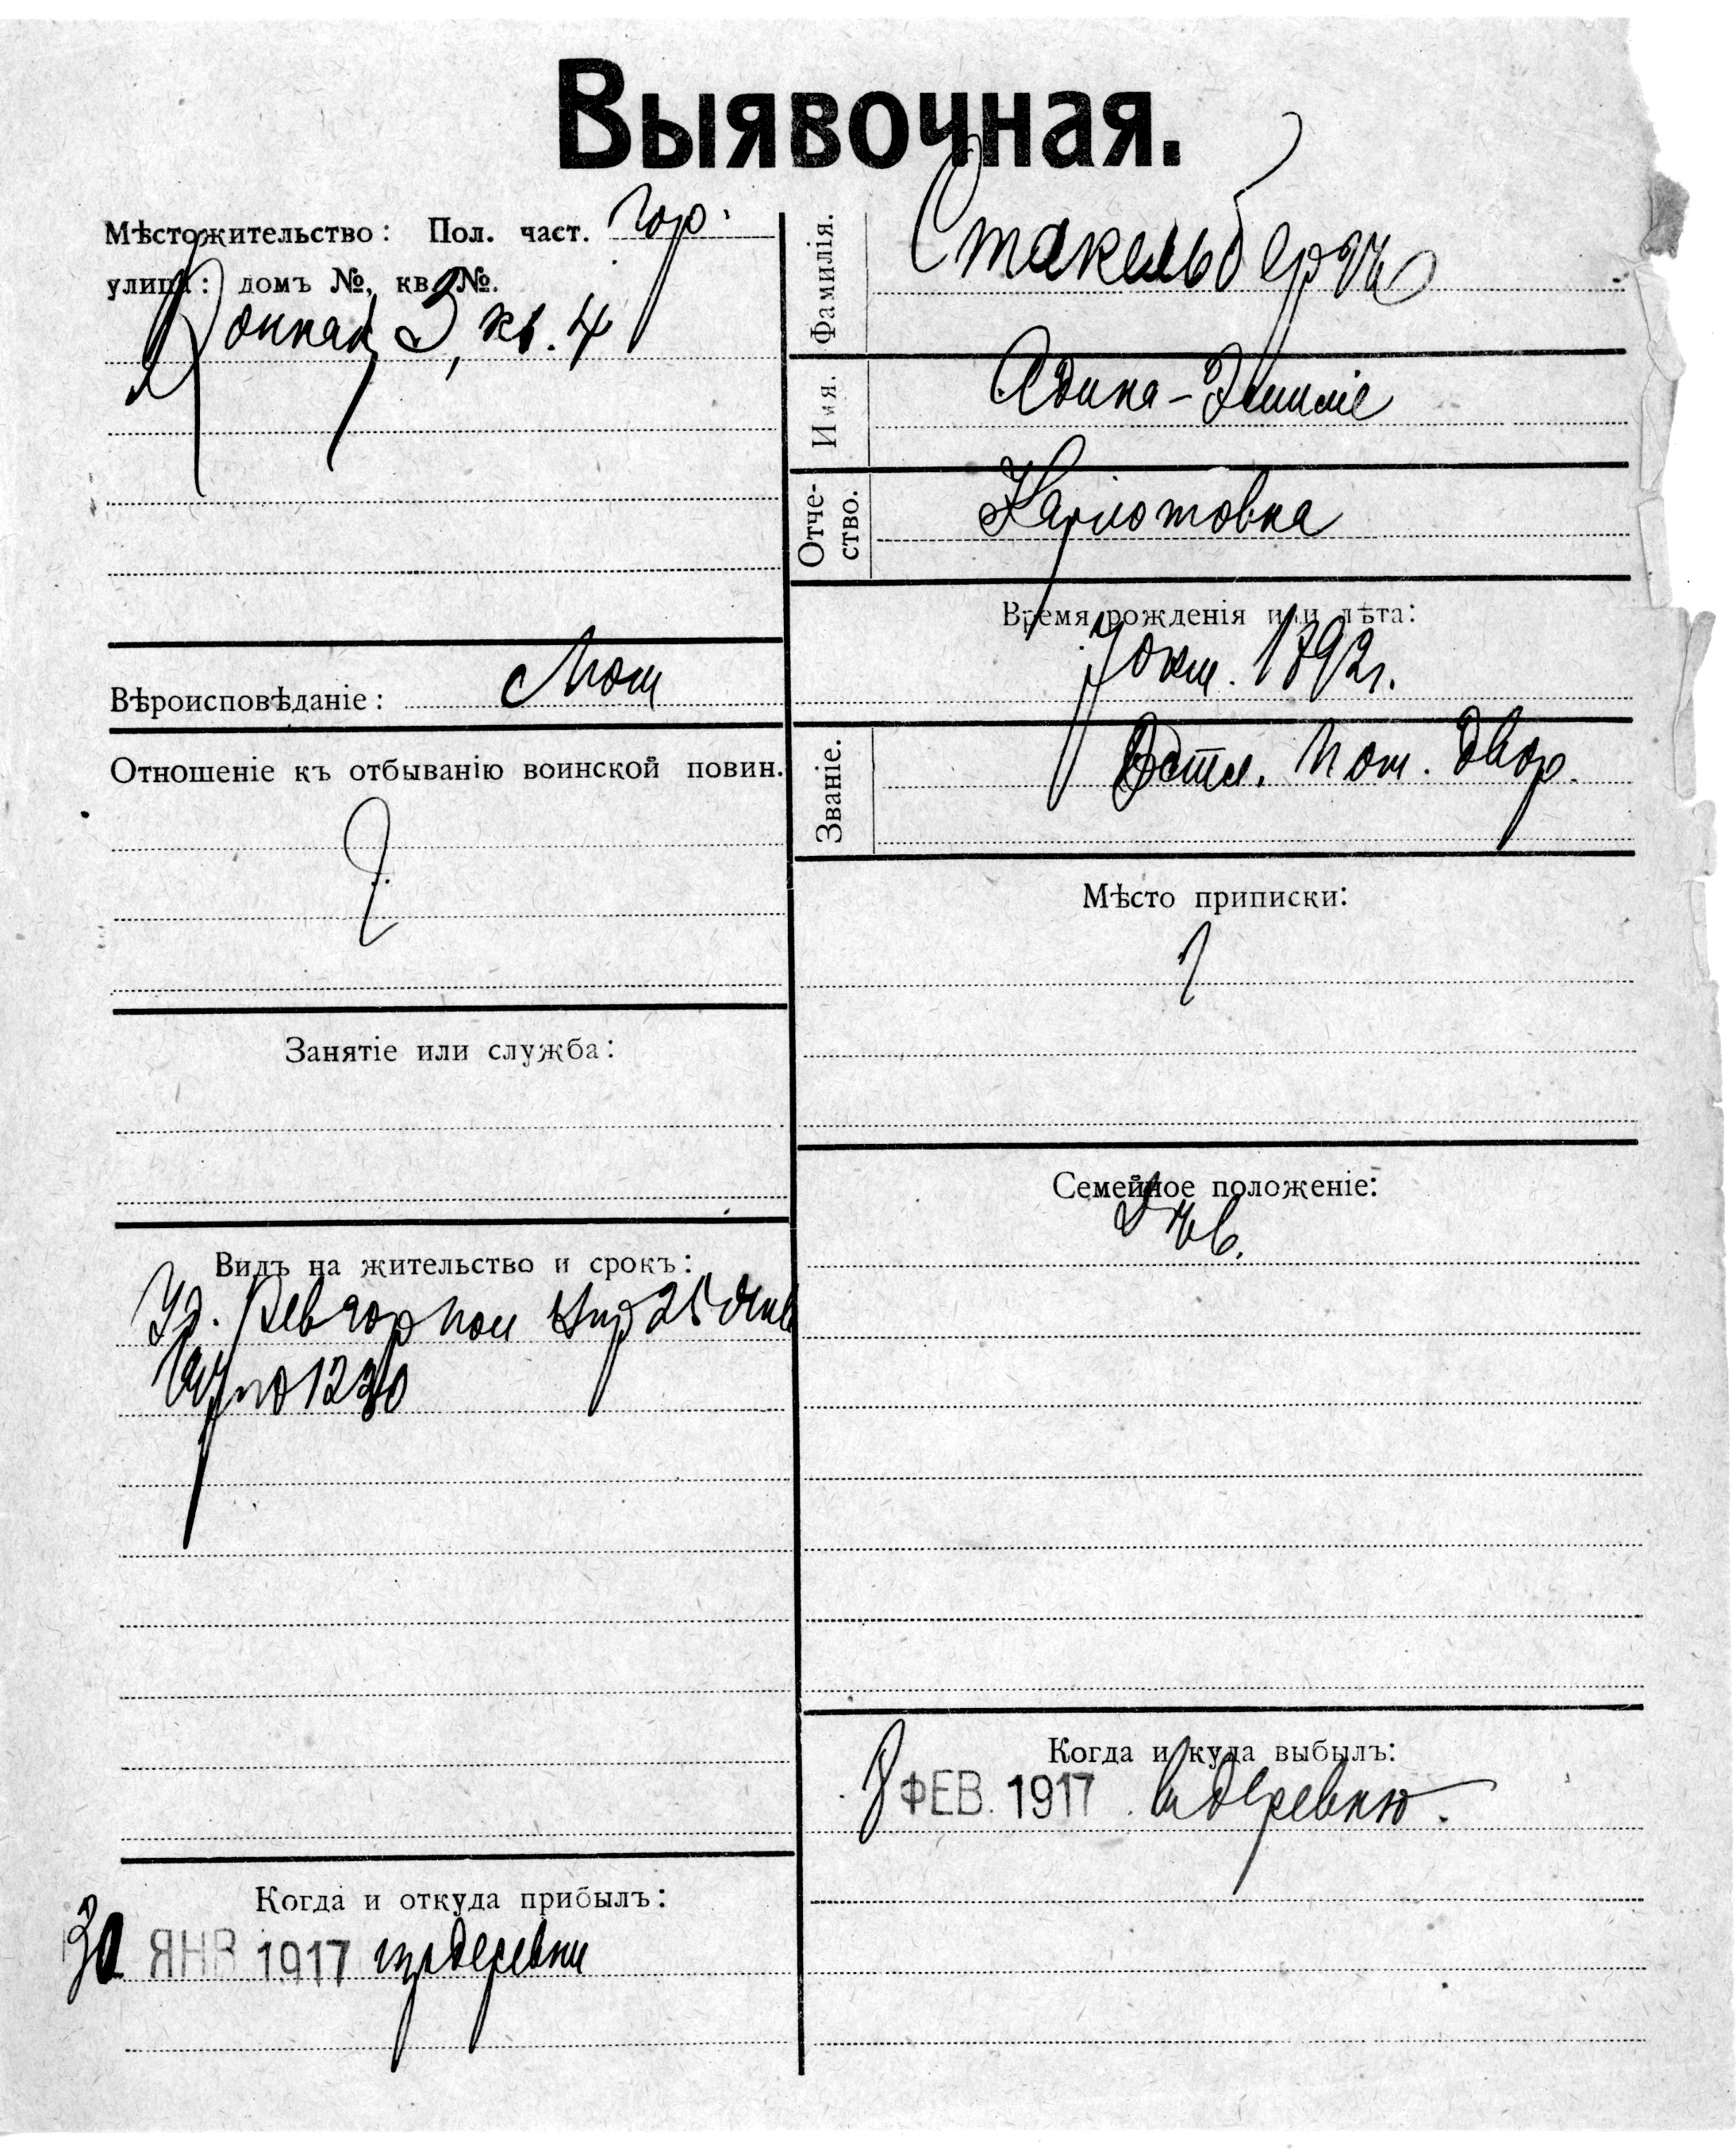 Выявочная.
Мѣстожительство: Пол. част. Гор.
улица: домъ №, кв. №.
Конная, 3, кв. 4
Вѣроисповѣданіе: Лют
Отношеніе къ отбыванію воинской повин.
Занятіе или служба:
Видъ на жительство и срокъ:
Уд. Рев гор пол Упр 25 Янв
1917 № 1230
Когда и откуда прибылъ:
30 ЯНВ 1917 изъ деревни
Фамилія. Стакельбергъ
Имя. Адина-Эмиліе
Отче-
ство. Карлотовна
Время рожденія или лѣта:
7 окт. 1892 г.
Званіе. Эстл. Пот. Двор.
Мѣсто приписки:
Семейное положеніе:
Дѣв.
Когда и куда выбылъ:
8 ФЕВ. 1917 въ деревню.